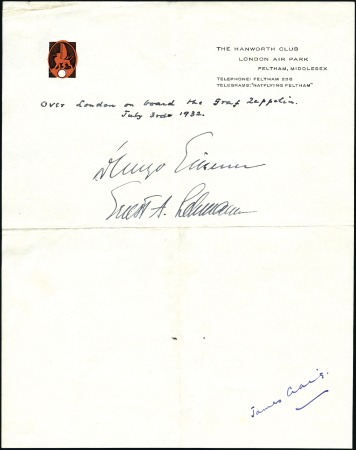 THE HANWORTH CLUB
LONDON AIR PARK
FELTHAM, MIDDLESEX
TELEPHONE: FELTHAM 256
TELEGRAMS: "NATFLYING FELTHAM"
Over London on board the Graf Zeppelin.
July 3rd 1932.
Dr Hugo Eckener
Ernst A. Lehmann
James Craig.